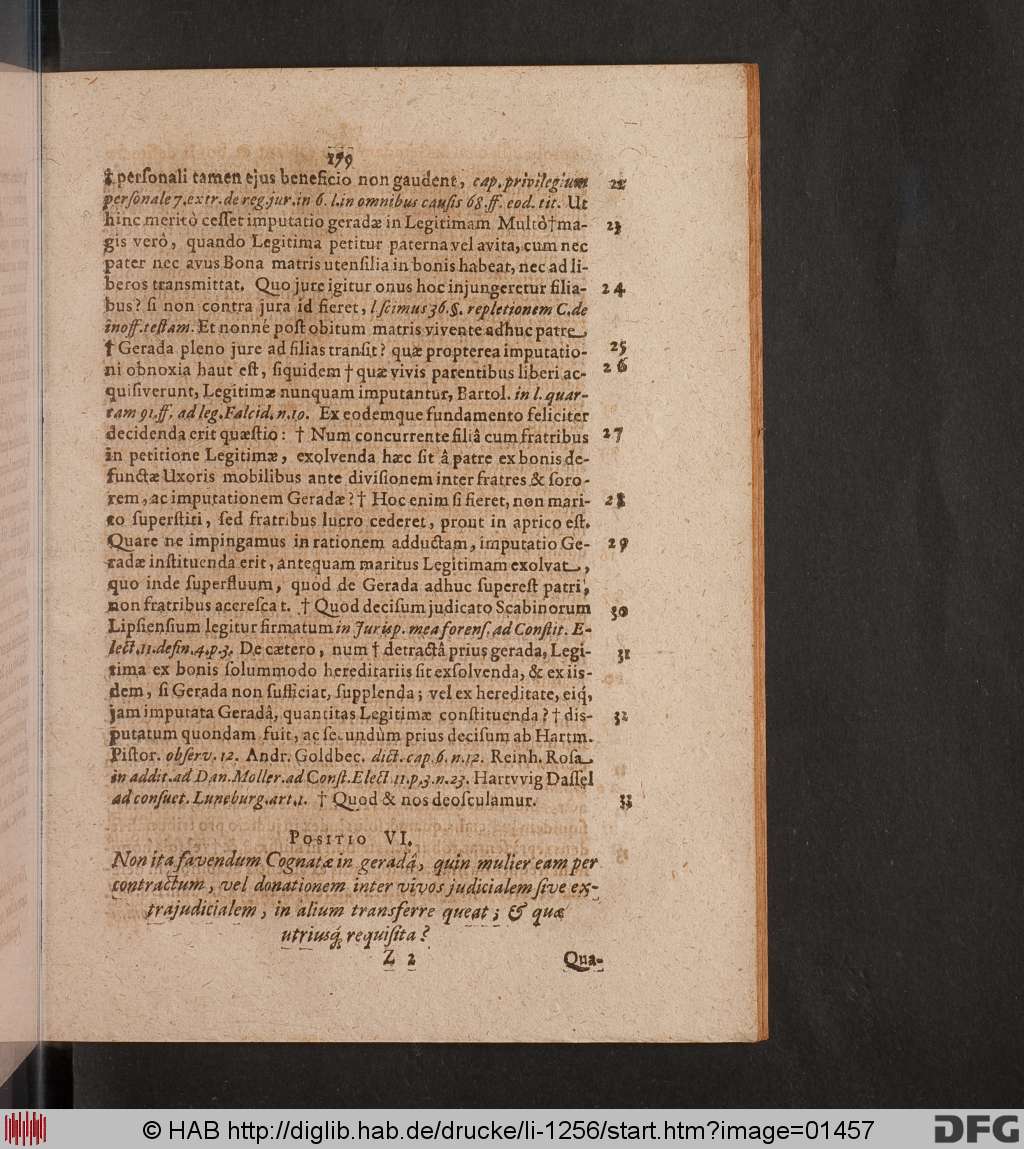 179
† personali tamen ejus beneficio non gaudent, cap. privilegium 22
personale 7. extr. de reg. jur. in 6. l. in omnibus causis 68. ff. eod. tit. Ut
hinc meritò cesset imputatio geradæ in Legitimam Multò † ma- 23
gis verò, quando Legitima petitur paterna vel avita, cum nec
pater nec avus Bona matris utensilia in bonis habeat, nec ad li-
beros transmittat. Quo jure igitur onus hoc injungeretur filia- 24
bus? si non contra jura id fieret, l. scimus 36. §. repletionem C. de
inoff. testam. Et nonne post obitum matris vivente adhuc patre
† Gerada pleno jure ad filias transit? quæ propterea imputatio- 25
ni obnoxia haut est, siquidem † quæ vivis parentibus liberi ac- 26
quisiverunt, Legitimæ nunquam imputantur, Bartol. in l. quar-
tam 91. ff. ad leg. Falcid. n. 10. Ex eodemque fundamento feliciter
decidenda erit quæstio: † Num concurrente filiâ cum fratribus 27
in petitione Legitimæ, exolvenda hæc sit â patre ex bonis de-
functæ Uxoris mobilibus ante divisionem inter fratres & soro-
rem, ac imputationem Geradæ? † Hoc enim si fieret, non mari- 28
to superstiti, sed fratribus lucro cederet, prout in aprico est.
Quare ne impingamus in rationem adductam, imputatio Ge- 29
radæ instituenda erit, antequam maritus Legitimam exolvat,
quo inde superfluum, quod de Gerada adhuc superest patri,
non fratribus accrescat. † Quod decisum judicato Scabinorum 30
Lipsiensium legitur firmatum in Jurisp. mea forens. ad Constit. E-
lect. 11. defin. 4. p. 3. De cætero, num † detractâ prius gerada, Legi- 31
tima ex bonis solummodo hereditariis sit exsolvenda, & ex iis-
dem, si Gerada non sufficiat, supplenda; vel ex hereditate, eiq́,
jam imputata Geradâ, quantitas Legitimæ constituenda? † dis- 32
putatum quondam fuit, ac secundùm prius decisum ab Hartm.
Pistor. observ. 12. Andr. Goldbec. dict. cap. 6. n. 12. Reinh. Rosa
in addit. ad Dan. Moller. ad Const. Elect. 11. p. 3. n. 23. Hartvvig Dassel
ad consuet. Luneburg. art. 1. † Quod & nos deosculamur. 33
POSITIO VI.
Non ita favendum Cognatæ in geradâ, quin mulier eam per
contractum, vel donationem inter vivos judicialem sive ex-
trajudicialem, in alium transferre queat; & quæ
utriusq́ requisita?
Z 2 Qua-
© HAB http://diglib.hab.de/drucke/li-1256/start.htm?image=01457
DFG